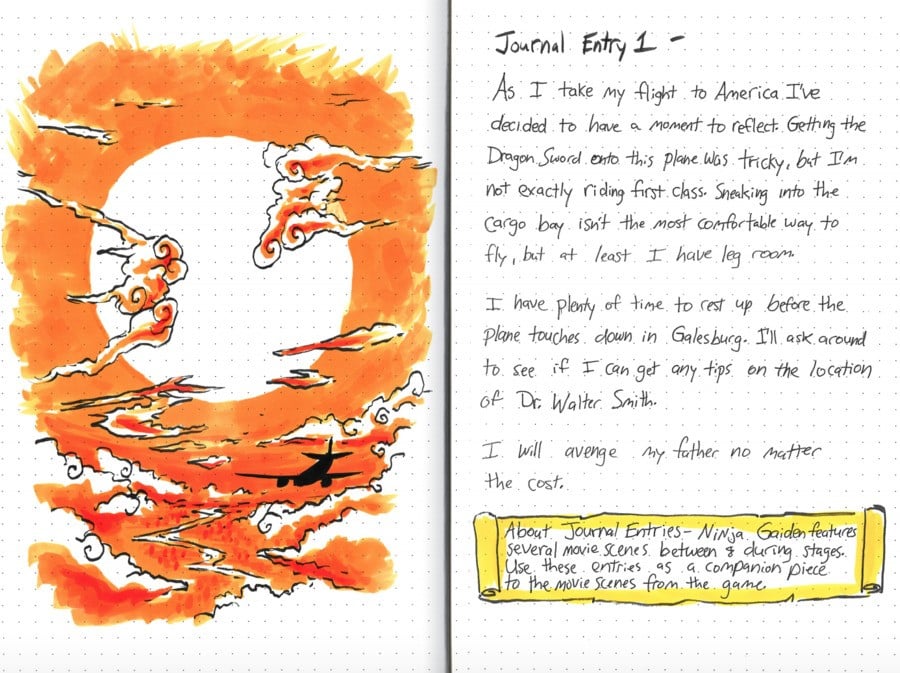 Journal Entry 1 -
As I take my flight to America I've
decided to have a moment to reflect. Getting the
Dragon Sword onto this plane was tricky, but I'm
not exactly riding first class. Sneaking into the
cargo bay isn't the most comfortable way to
fly, but at least I have leg room.
I have plenty of time to rest up before the
plane touches down in Galesburg. I'll ask around
to see if I can get any tips on the location
of Dr. Walter Smith.
I will avenge my father no matter
the cost.
About Journal Entries- Ninja Gaiden features
several movie scenes between & during stages.
Use these entries as a companion piece
to the movie scenes from the game.